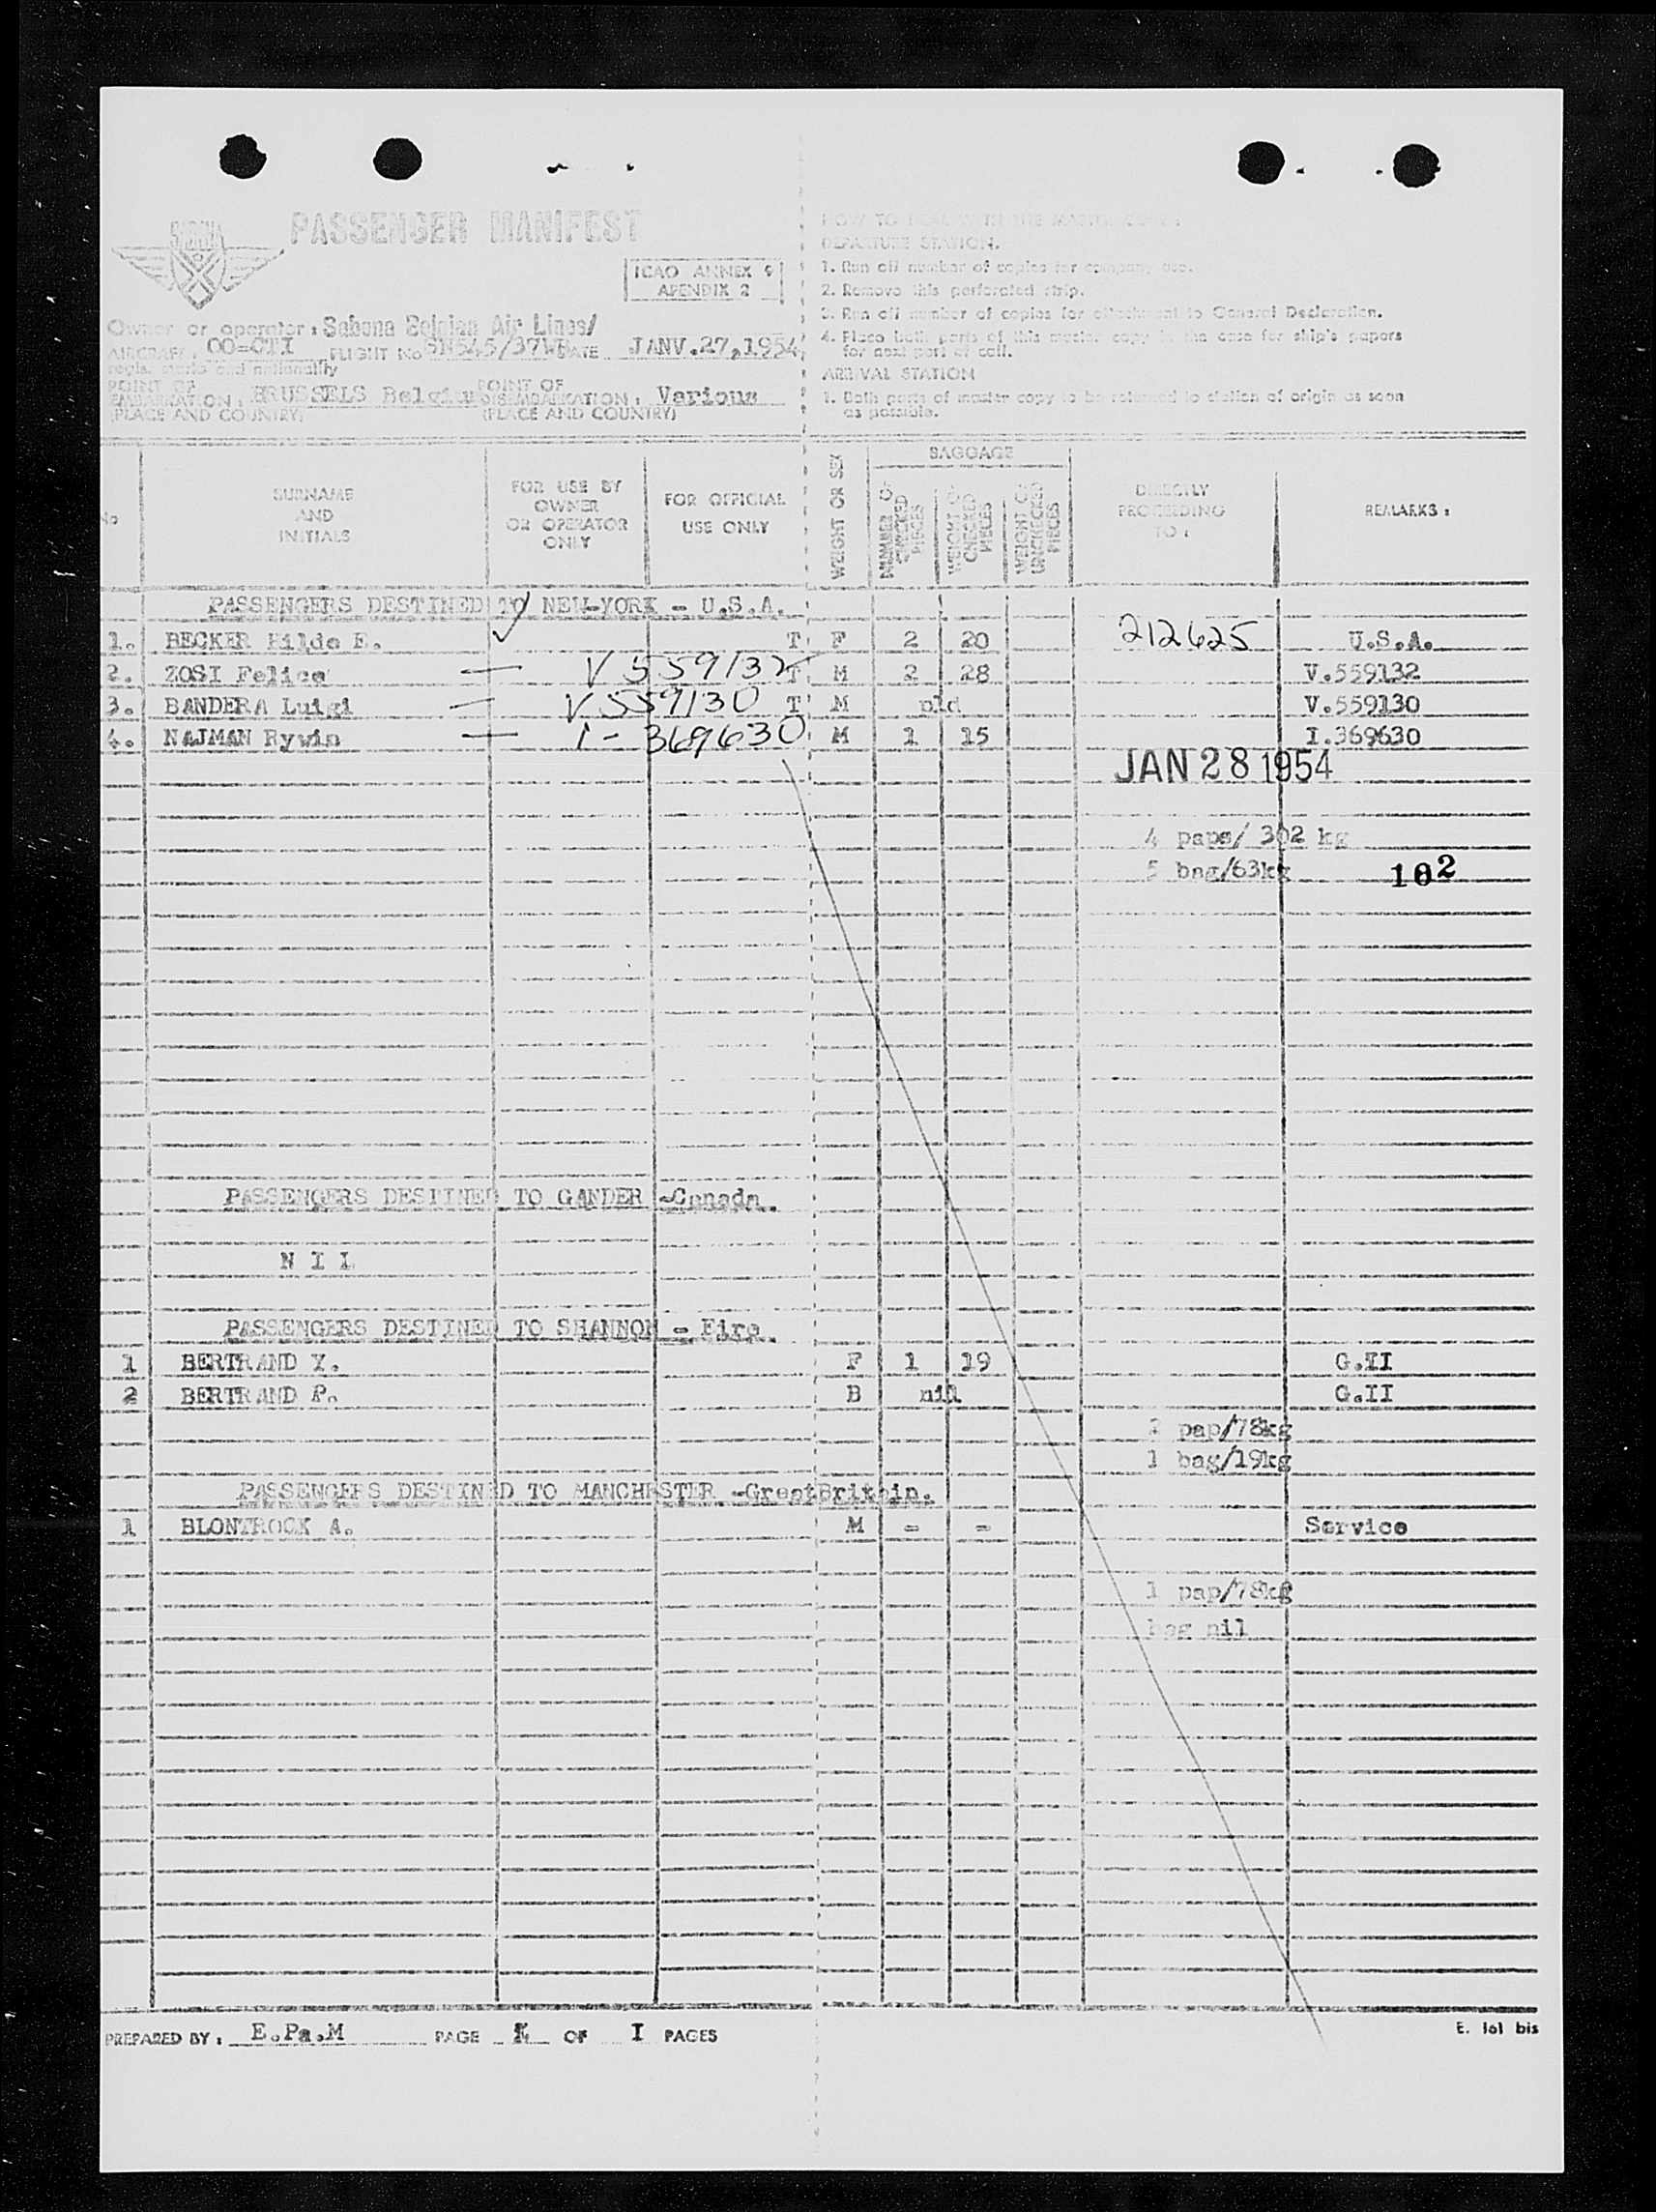 SABENA
PASSENGER MANIFEST
ICAO ANNEX 9
APENDIX 2
Owner or operator : Sabena Belgian Air Lines/
AIRCRAFT : OO-CTI FLIGHT No SN545/37WB DATE JANV.27,1954
regis. marks and nationality
POINT OF EMBARKATION : BRUSSELS Belgium POINT OF DISEMBARKATION : Various
(PLACE AND COUNTRY) (PLACE AND COUNTRY)
HOW TO DEAL WITH THE MASTER COPY :
DEPARTURE STATION.
1. Run off number of copies for company use.
2. Remove this perforated strip.
3. Run off number of copies for attachment to General Declaration.
4. Place both parts of this master copy in the case for ship's papers
for next port of call.
ARRIVAL STATION
1. Both parts of master copy to be returned to station of origin as soon
as possible.
No
SURNAME AND INITIALS
FOR USE BY OWNER OR OPERATOR ONLY
FOR OFFICIAL USE ONLY
WEIGHT OR SEX
BAGGAGE
NUMBER OF CHECKED PIECES
WEIGHT OF CHECKED PIECES
WEIGHT OF UNCHECKED PIECES
DIRECTLY PROCEEDING TO :
REMARKS :
PASSENGERS DESTINED TO NEW-YORK - U.S.A.
1. BECKER Hilde E. ✓ T F 2 20 212625 U.S.A.
2. ZOSI Felice — V 559132 T M 2 28 V.559132
3. BANDERA Luigi — V 559130 T M pld V.559130
4. NAJMAN Rywin — I - 369630 M 1 15 I.369630
JAN 28 1954
4 paps/ 302 kg
5 bag/63kg 102
PASSENGERS DESTINED TO GANDER -Canada.
N I L
PASSENGERS DESTINED TO SHANNON - Eire.
1 BERTRAND Y. F 1 19 G.II
2 BERTRAND P. B nil G.II
2 pap/78kg
1 bag/19kg
PASSENGERS DESTINED TO MANCHESTER -GreatBritain.
1 BLONTROCK A. M - - Service
1 pap/78kg
bag nil
PREPARED BY : E.Pa.M PAGE I OF I PAGES
E. 101 bis